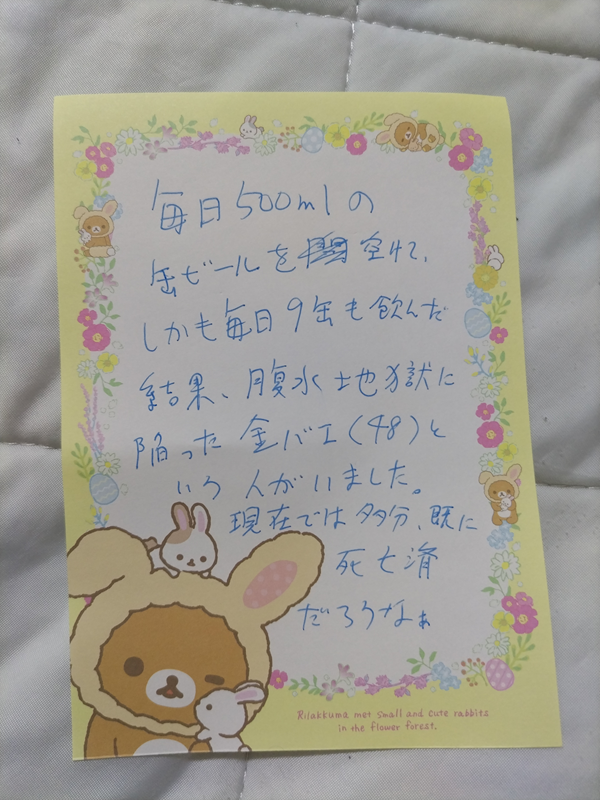 毎日500mlの
缶ビールを空けて、
しかも毎日9缶も飲んだ
結果、腹水地獄に
陥った金バエ(48)と
いう人がいました。
現在では多分、既に
死亡済
だろうなぁ
Rilakkuma met small and cute rabbits
in the flower forest.